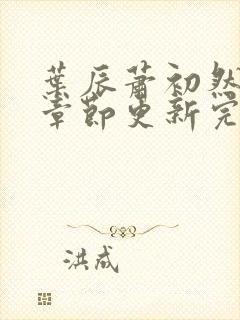 葉辰蕭初然
章節更新完
洪成